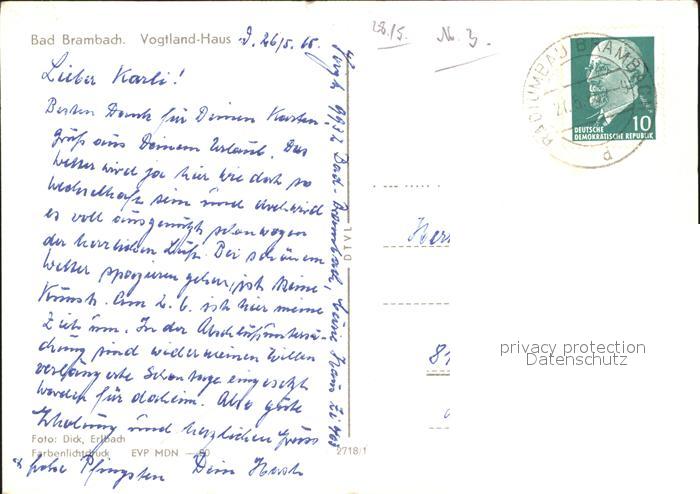 Bad Brambach. Vogtland-Haus
d. 26/5. 66.
28./5.
Nr. 3.
Lieber Karli!
Besten Dank für Deinen Karten-
gruß aus Deinem Urlaub. Das
Wetter wird ja hier wie dort so
wechselhaft sein und doch wird
es voll ausgenützt schon wegen
der herrlichen Luft. Bei schönem
Wetter spazieren gehen, ist keine
Kunst. Am 2. 6. ist hier meine
Zeit um. In der Abschlußuntersu-
chung sind wider meinen Willen
verlängerte Schontage eingesetzt
worden für daheim. Also gute
Erholung und herzlichen Gruss
& frohe Pfingsten Dein Horst
9932 Bad-Brambach,
Zi 408
Foto: Dick, Erlbach
Farbenlichtdruck EVP MDN
2718/1
DTVL
RADIUMBAD BRAMBACH
DEUTSCHE
DEMOKRATISCHE REPUBLIK
10
Herr
privacy protection
Datenschutz